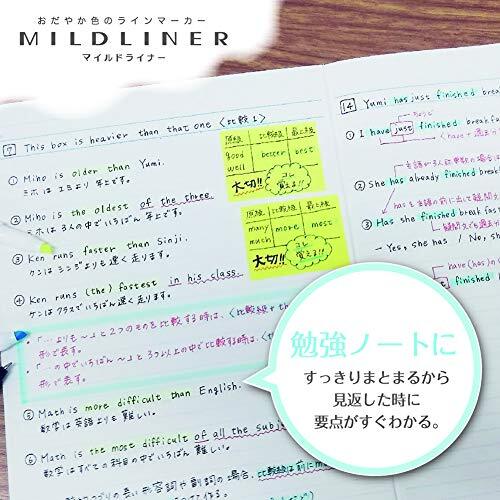 おだやか色のラインマーカー
MILDLINER
マイルドライナー
7 This box is heavier than that one 〈比較1〉
① Miho is older than Yumi.
ミホは ユミより 年上です。
② Miho is the oldest of the three.
ミホは3人の中でいちばん年上です。
③ Ken runs faster than Sinji.
ケンはシンジよりも速く走ります。
④ Ken runs (the) fastest in his class.
ケンはクラスでいちばん速く走ります。
・「…よりも~」と2つのものを比較する時は、〈比較級+th
形で表す。
・「…の中でいちばん~」と3つ以上の中で比較する時は、〈th
形で表す。
⑤ Math is more difficult than English.
数学は英語よりも難しい。
⑥ Math is the most difficult of all the subj
数学はすべての科目の中でいちばん難しい。
長い形容詞や副詞の場合、比較級は前にm
原級 比較級 最上級
good
well better best
大切!! コレ覚えよ!!
原級 比較級 最上級
many
much more most
大切!! コレ覚えよ!!
14 Yumi has just finished break
① I have just finished breakfa
② She has already finished break
③ Has she finished breakfast
- Yes, she has / No, sh
have(has)
finished
勉強ノートに
すっきりまとまるから
見返した時に
要点がすぐわかる。